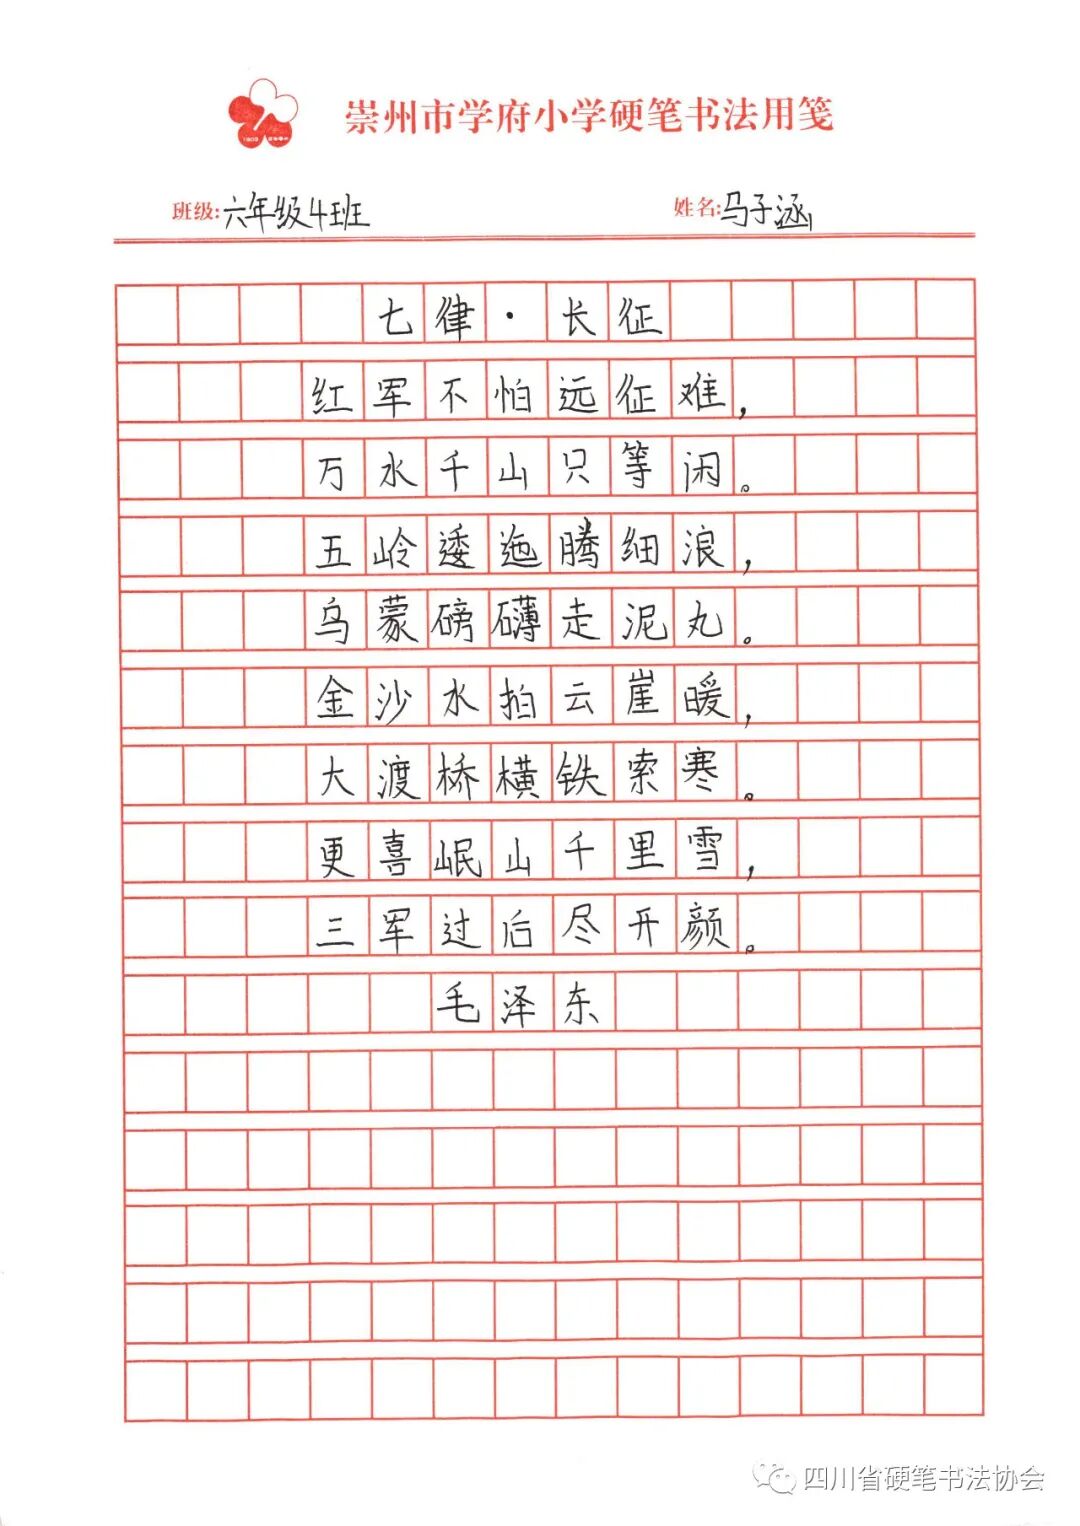 崇州市学府小学硬笔书法用笺
班级:六年级4班 姓名:马子涵
七律·长征
红军不怕远征难，
万水千山只等闲。
五岭逶迤腾细浪，
乌蒙磅礴走泥丸。
金沙水拍云崖暖，
大渡桥横铁索寒。
更喜岷山千里雪，
三军过后尽开颜。
毛泽东
四川省硬笔书法协会